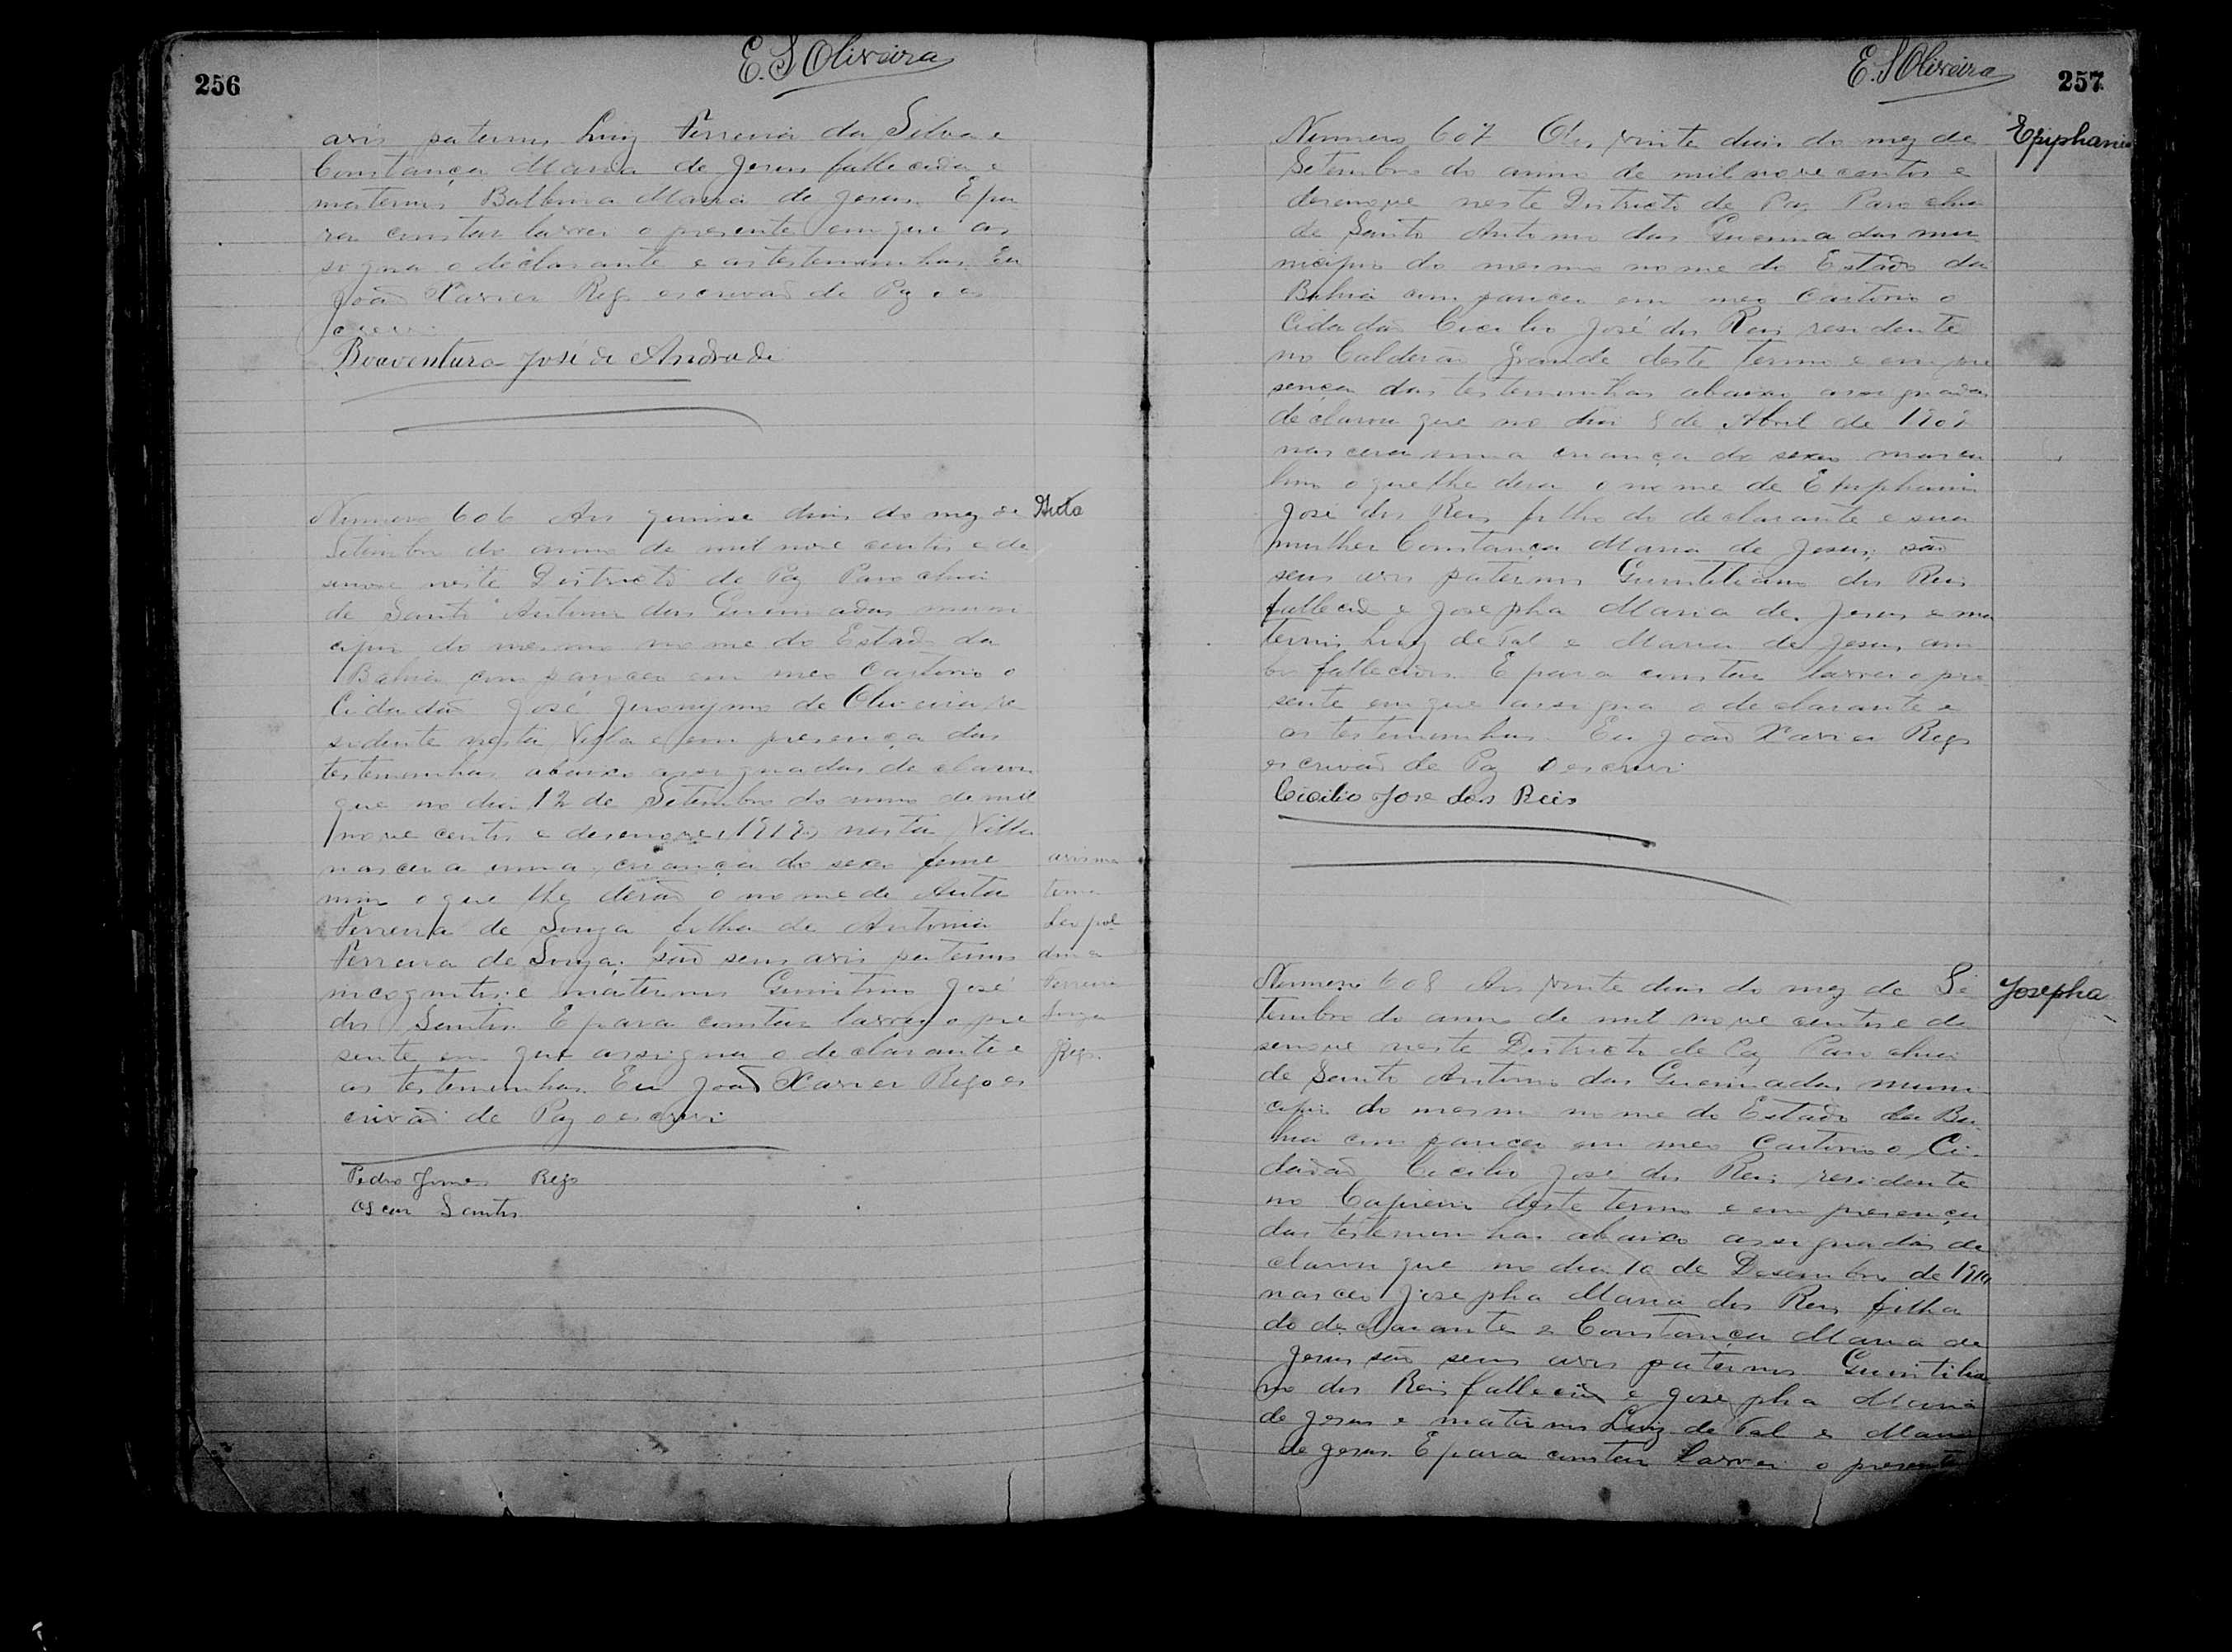 256
E. S Oliveira
avós paternos Luiz Ferreira da Silva e
Constança Maria de Jesus fallecida e
maternos Balbina Maria de Jesus. E pa
ra constar lavrei o presente em que as
signa o declarante e as testemunhas. Eu
João Xavier Rego escrivão de Paz o es
crevi.
Boaventura José de Andrade
Numero 606 Aos quinse dias do mez de
Setembro do anno de mil nove centos e de
senove neste Districto de Paz Parochia
de Santo Antonio das Queimadas muni
cipio do mesmo nome do Estado da
Bahia compareceo em meo Cartorio o
Cidadão José Jeronymo de Oliveira re
sidente nesta Villa e em presença das
testemunhas abaixo assignadas declarou
que no dia 12 de Setembro do anno de mil
nove centos e desenove, 1919, nesta Villa
nascera uma criança do sexo feme
nino o que lhe derão o nome de Auta
Ferreira de Souza filha de Antonia
Ferreira de Souza; são seus avós paternos
incognitos e maternos Quintino José
dos Santos. E para constar lavrei o pre
sente em que assigna o declarante e
as testemunhas. Eu João Xavier Rego es
crivão de Paz o escrevi
Auta
avó ma
terna
Leopol
dina
Ferreira
Souza
Rego.
Pedro Gomes Rego
Oscar Santos
257
E. S Oliveira
Numero 607 Aos vinte dias do mez de
Setembro do anno de mil nove centos e
desenove neste Districto de Paz Parochia
de Santo Antonio das Queimadas mu
nicipio do mesmo nome do Estado da
Bahia compareceo em meo Cartorio o
Cidadão Cicilio José dos Reis residente
no Calderão Grande deste termo e em pre
sença das testemunhas abaixo assignadas
declarou que no dia 8 de Abril de 1902
nascera uma criança do sexo mascu
lino o que lhe dera o nome de Epiphanio
José dos Reis filho do declarante e sua
mulher Constança Maria de Jesus; são
seus avós paternos Quintiliano dos Reis
fallecido e Josepha Maria de Jesus e ma
ternos Luiz de Tal e Maria de Jesus am
bos fallecidos. E para constar lavrei o pre
sente em que assigna o declarante e
as testemunhas. Eu João Xavier Rego
escrivão de Paz o escrevi
Epiphanio
Cicilio Jose dos Reis
Numero 608 Aos vinte dias do mez de Se
tembro do anno de mil nove centos e de
senove neste Districto de Paz Parochia
de Santo Antonio das Queimadas muni
cipio do mesmo nome do Estado da Ba
hia compareceo em meo Cartorio o Ci
dadão Cicilio José dos Reis residente
no deste termo e em presença
das testemunhas abaixo assignadas de
clarou que no dia 10 de Desembro de
nasceo Josepha Maria dos Reis filha
do declarante e Constança Maria de
Jesus são seus avós paternos Quintilia
no dos Reis fallecido e Josepha Maria
de Jesus e maternos Luiz de Tal e Maria
de Jesus. E para constar lavrei o presente
Josepha